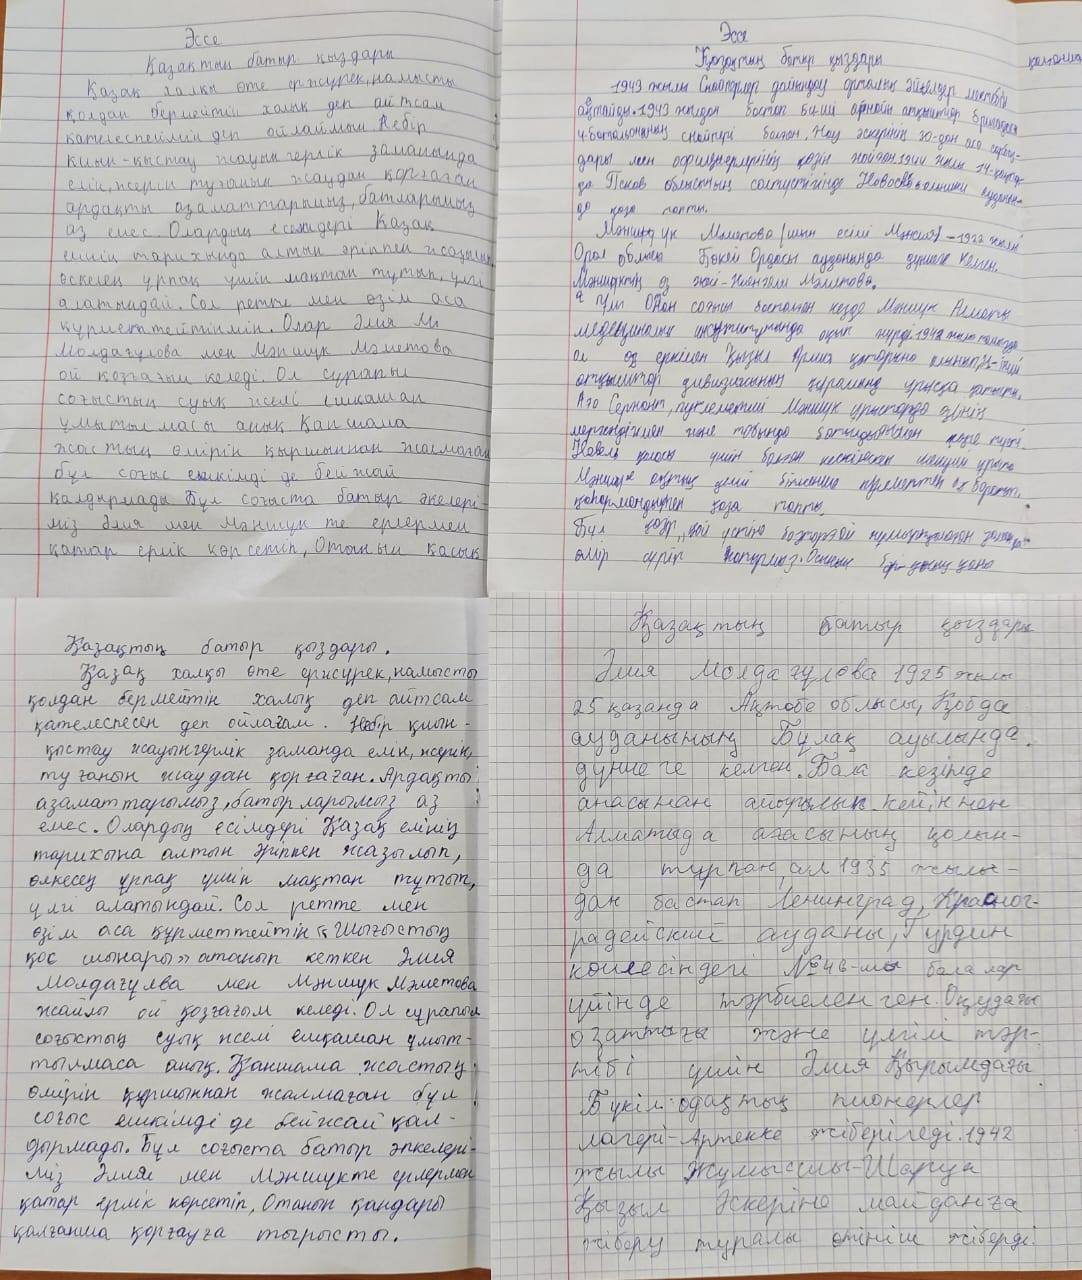 Эссе
Қазақтың батыр қыздары
Қазақ халқы өте ержүрек, намысты
қолдан бермейтін халық деп айтсам
қателеспеймін деп ойлаймын Небір
қиын-қыстау жауынгерлік заманында
елін, жерін туғанын жаудан қорғаған
ардақты азаматтарымыз, батырымыз
аз емес. Олардың есімдері Қазақ
елінің тарихында алтын әріппен жазылып
өскелең ұрпақ үшін мақтан тұтып, үлгі
алатындай. Сол ретте мен өзім аса
құрметтейтінмін. Олар Әлия М
Молдағулова мен Мәншүк Мәметова
ой қозғағым келеді. Ол сұрапыл
соғыстың суық желі ешқашан
ұмытылмасы анық Қаншама
жастың өмірін қыршыннан жалмаған
бұл соғыс ешкімді де бейжай
қалдырмады Бұл соғыста батыр әпкелері-
міз Әлия мен Мәншүк те ерлермен
қатар ерлік көрсетіп, Отанын қасық
Эссе
Қазақтың батыр қыздары
1943 жылы Снайперлер даярлау орталық әйелдер мектебін
аяқтайды. 1943 жылдан бастап 54-ші арнайы атқыштар бригадасы
4-батальонының снайпері болған. Жау әскерінің 30-дан аса сарбаз-
дары мен офицерлерінің көзін жойған. 1944 жылы 14-қаңтар-
да Псков облысының солтүстігінде Новосокольники ауданын-
да қаза тапты.
Мәншүк Мәметова (шын есімі Мәнсия) - 1922 жылы
Орал облысы Бөкей Ордасы ауданында дүниеге келген.
Мәншүктің өз
Ұлы Отан соғысы басталған кезде Мәншүк Алматы
медициналық институтында оқып жүрді. 1942 жылы
ол өз еркімен Қызыл Армия қатарына алынып, 21-ші
атқыштар дивизиясының құрамында ұрысқа қатысты.
Аға Сержант, пулеметші Мәншүк ұрыстарда өзінің
мергендігімен және батылдығымен көзге түсті.
Невель қаласы үшін болған кескілескен ұрыста
Мәншүк
қаһармандықпен қаза тапты.
Бұл
өмір сүріп жатырмыз.
Қазақтың батыр қыздары.
Қазақ халқы өте ержүрек, намысты
қолдан бермейтін халық деп айтсам
қателеспесен деп ойлағам. Небір қиын-
қыстау жауынгерлік заманда елін, жерін,
туғанын жаудан қорғаған. Ардақты
азаматтарымыз, батырларымыз аз
емес. Олардың есімдері Қазақ елінің
тарихына алтын әріппен жазылып,
өлкесең ұрпақ үшін мақтан тұтып,
үлгі алатындай. Сол ретте мен
өзім аса құрметтейтін «Шығыстың
қос шынары» атанып кеткен Әлия
Молдағұлва мен Мәншүк Мәметова
жайлы ой қозғағым келеді. Ол сұрапыл
соғыстың суық желі ешқашан ұмыт-
тылмаса анық. Қаншама жастың
өмірін құршыннан жалмаған бұл
соғыс ешкімді де бейжай қал-
дырмады. Бұл соғыста батыр әпкелері-
міз Әлия мен Мәншүкте ерлермен
қатар ерлік көрсетіп, Отанын қандары
қалғанша қорғауға тырысты.
Қазақтың батыр қыздары
Әлия Молдағұлова 1925 жылы
25 қазанда Ақтөбе облысы, Қобда
ауданының Бұлақ ауылында
дүниеге келген. Бала кезінде
анасынан айырылып кейіннен
Алматыда ағасының қолын-
да тұрған, ал 1935 жылы-
дан бастап Ленинград, Красног-
радейский ауданы, Урдин
көшесіндегі №46-шы балалар
үйінде тәрбиеленген. Оқудағы
озаттыға және үлгілі тәр-
тібі үшін Әлия Қырымдағы
Бүкіл-одақтың пионерлер
лагері-Артекке жіберіледі. 1942
жылы Жұмысшы-Шаруа
Қызыл Әскеріне майданға
жіберу туралы өтініш жіберді.